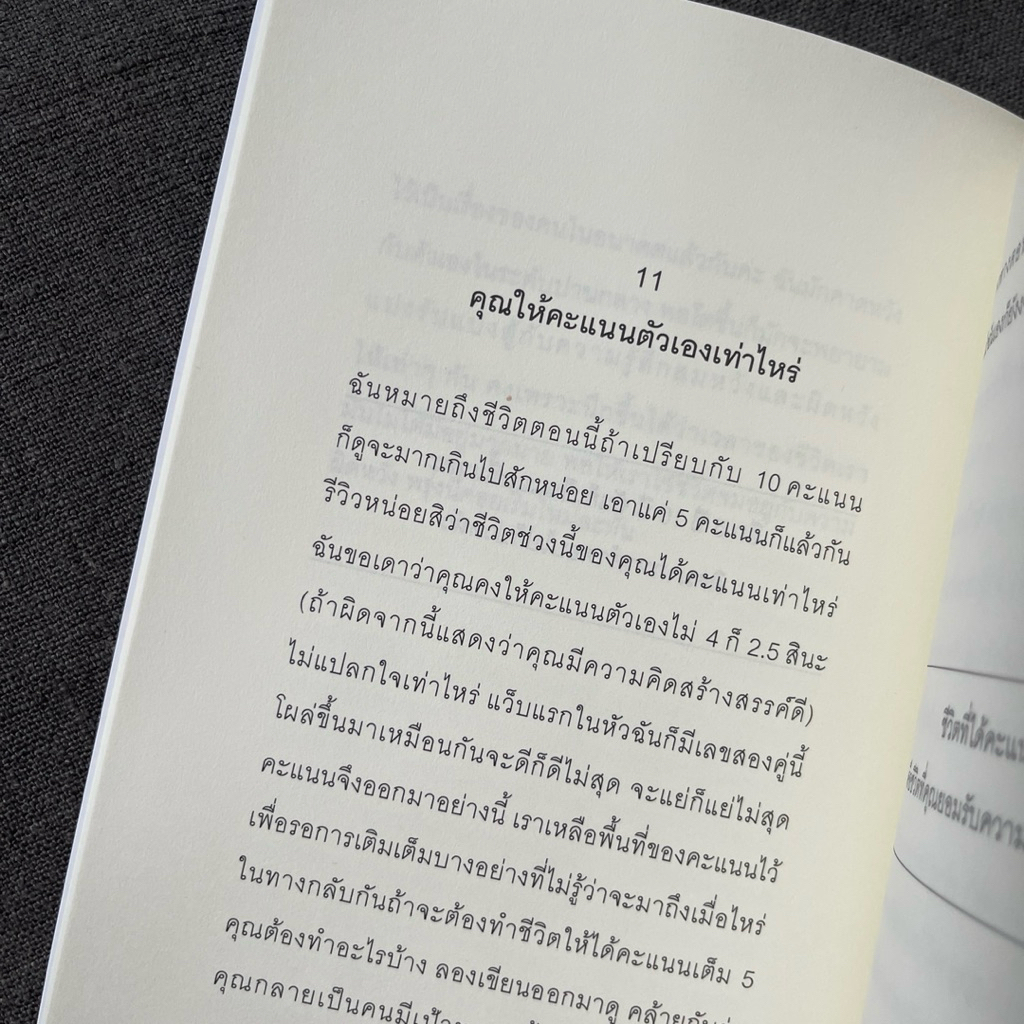 11
คุณให้คะแนนตัวเองเท่าไหร่
ฉันหมายถึงชีวิตตอนนี้ถ้าเปรียบกับ 10 คะแนน
ก็ดูจะมากเกินไปสักหน่อย เอาแค่ 5 คะแนนก็แล้วกัน
รีวิวหน่อยสิว่าชีวิตช่วงนี้ของคุณได้คะแนนเท่าไหร่
ฉันขอเดาว่าคุณคงให้คะแนนตัวเองไม่ 4 ก็ 2.5 สินะ
(ถ้าผิดจากนี้แสดงว่าคุณมีความคิดสร้างสรรค์ดี)
ไม่แปลกใจเท่าไหร่ แว็บแรกในหัวฉันก็มีเลขสองคู่นี้
โผล่ขึ้นมาเหมือนกันจะดีก็ดีไม่สุด จะแย่ก็แย่ไม่สุด
คะแนนจึงออกมาอย่างนี้ เราเหลือพื้นที่ของคะแนนไว้
เพื่อรอการเติมเต็มบางอย่างที่ไม่รู้ว่าจะมาถึงเมื่อไหร่
ในทางกลับกันถ้าจะต้องทำชีวิตให้ได้คะแนนเต็ม 5
คุณต้องทำอะไรบ้าง ลองเขียนออกมาดู
คุณกลายเป็นคนมี
ชีวิตที่ได้คะแนน
ชีวิตที่คุณยอมรับความ